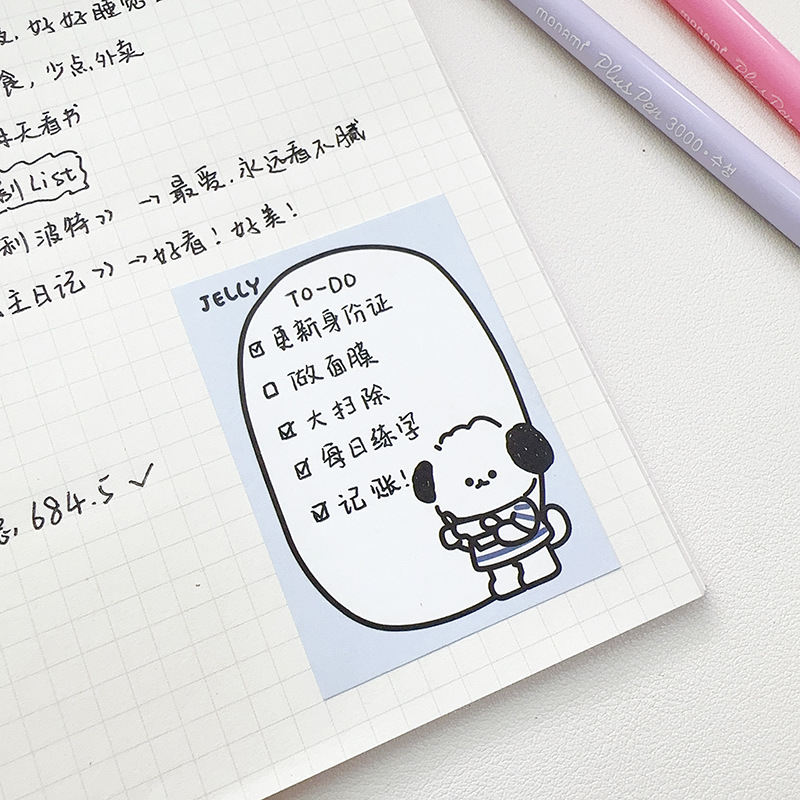 好好睡觉
食，少点外卖
每天看书
剧List
利波特》→最爱.永远看不腻
主日记》→好看！好美！
684.5 ✓
JELLY TO-DO
☑更新身份证
☐做面膜
☑大扫除
☑每日练字
☑记账!
monami Plus Pen 3000·수성
monami Plus Pen